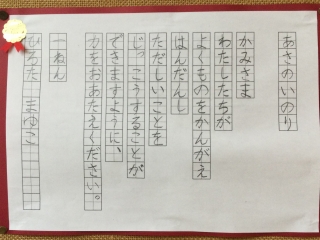 あさのいのり
かみさま
わたしたちが
よくものをかんがえ
はんだんし
ただしいことを
じっこうすることが
できますように、
力をおあたえください。
一ねん
ひろた まゆこ